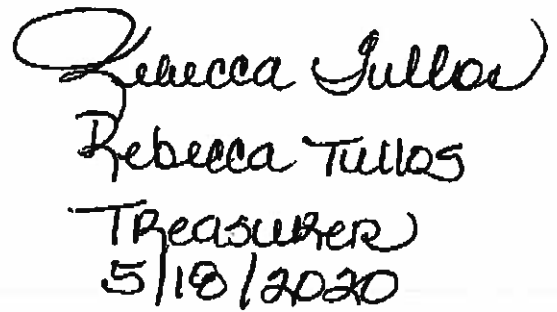 Rebecca Tullos
Rebecca Tullos
Treasurer
5/18/2020